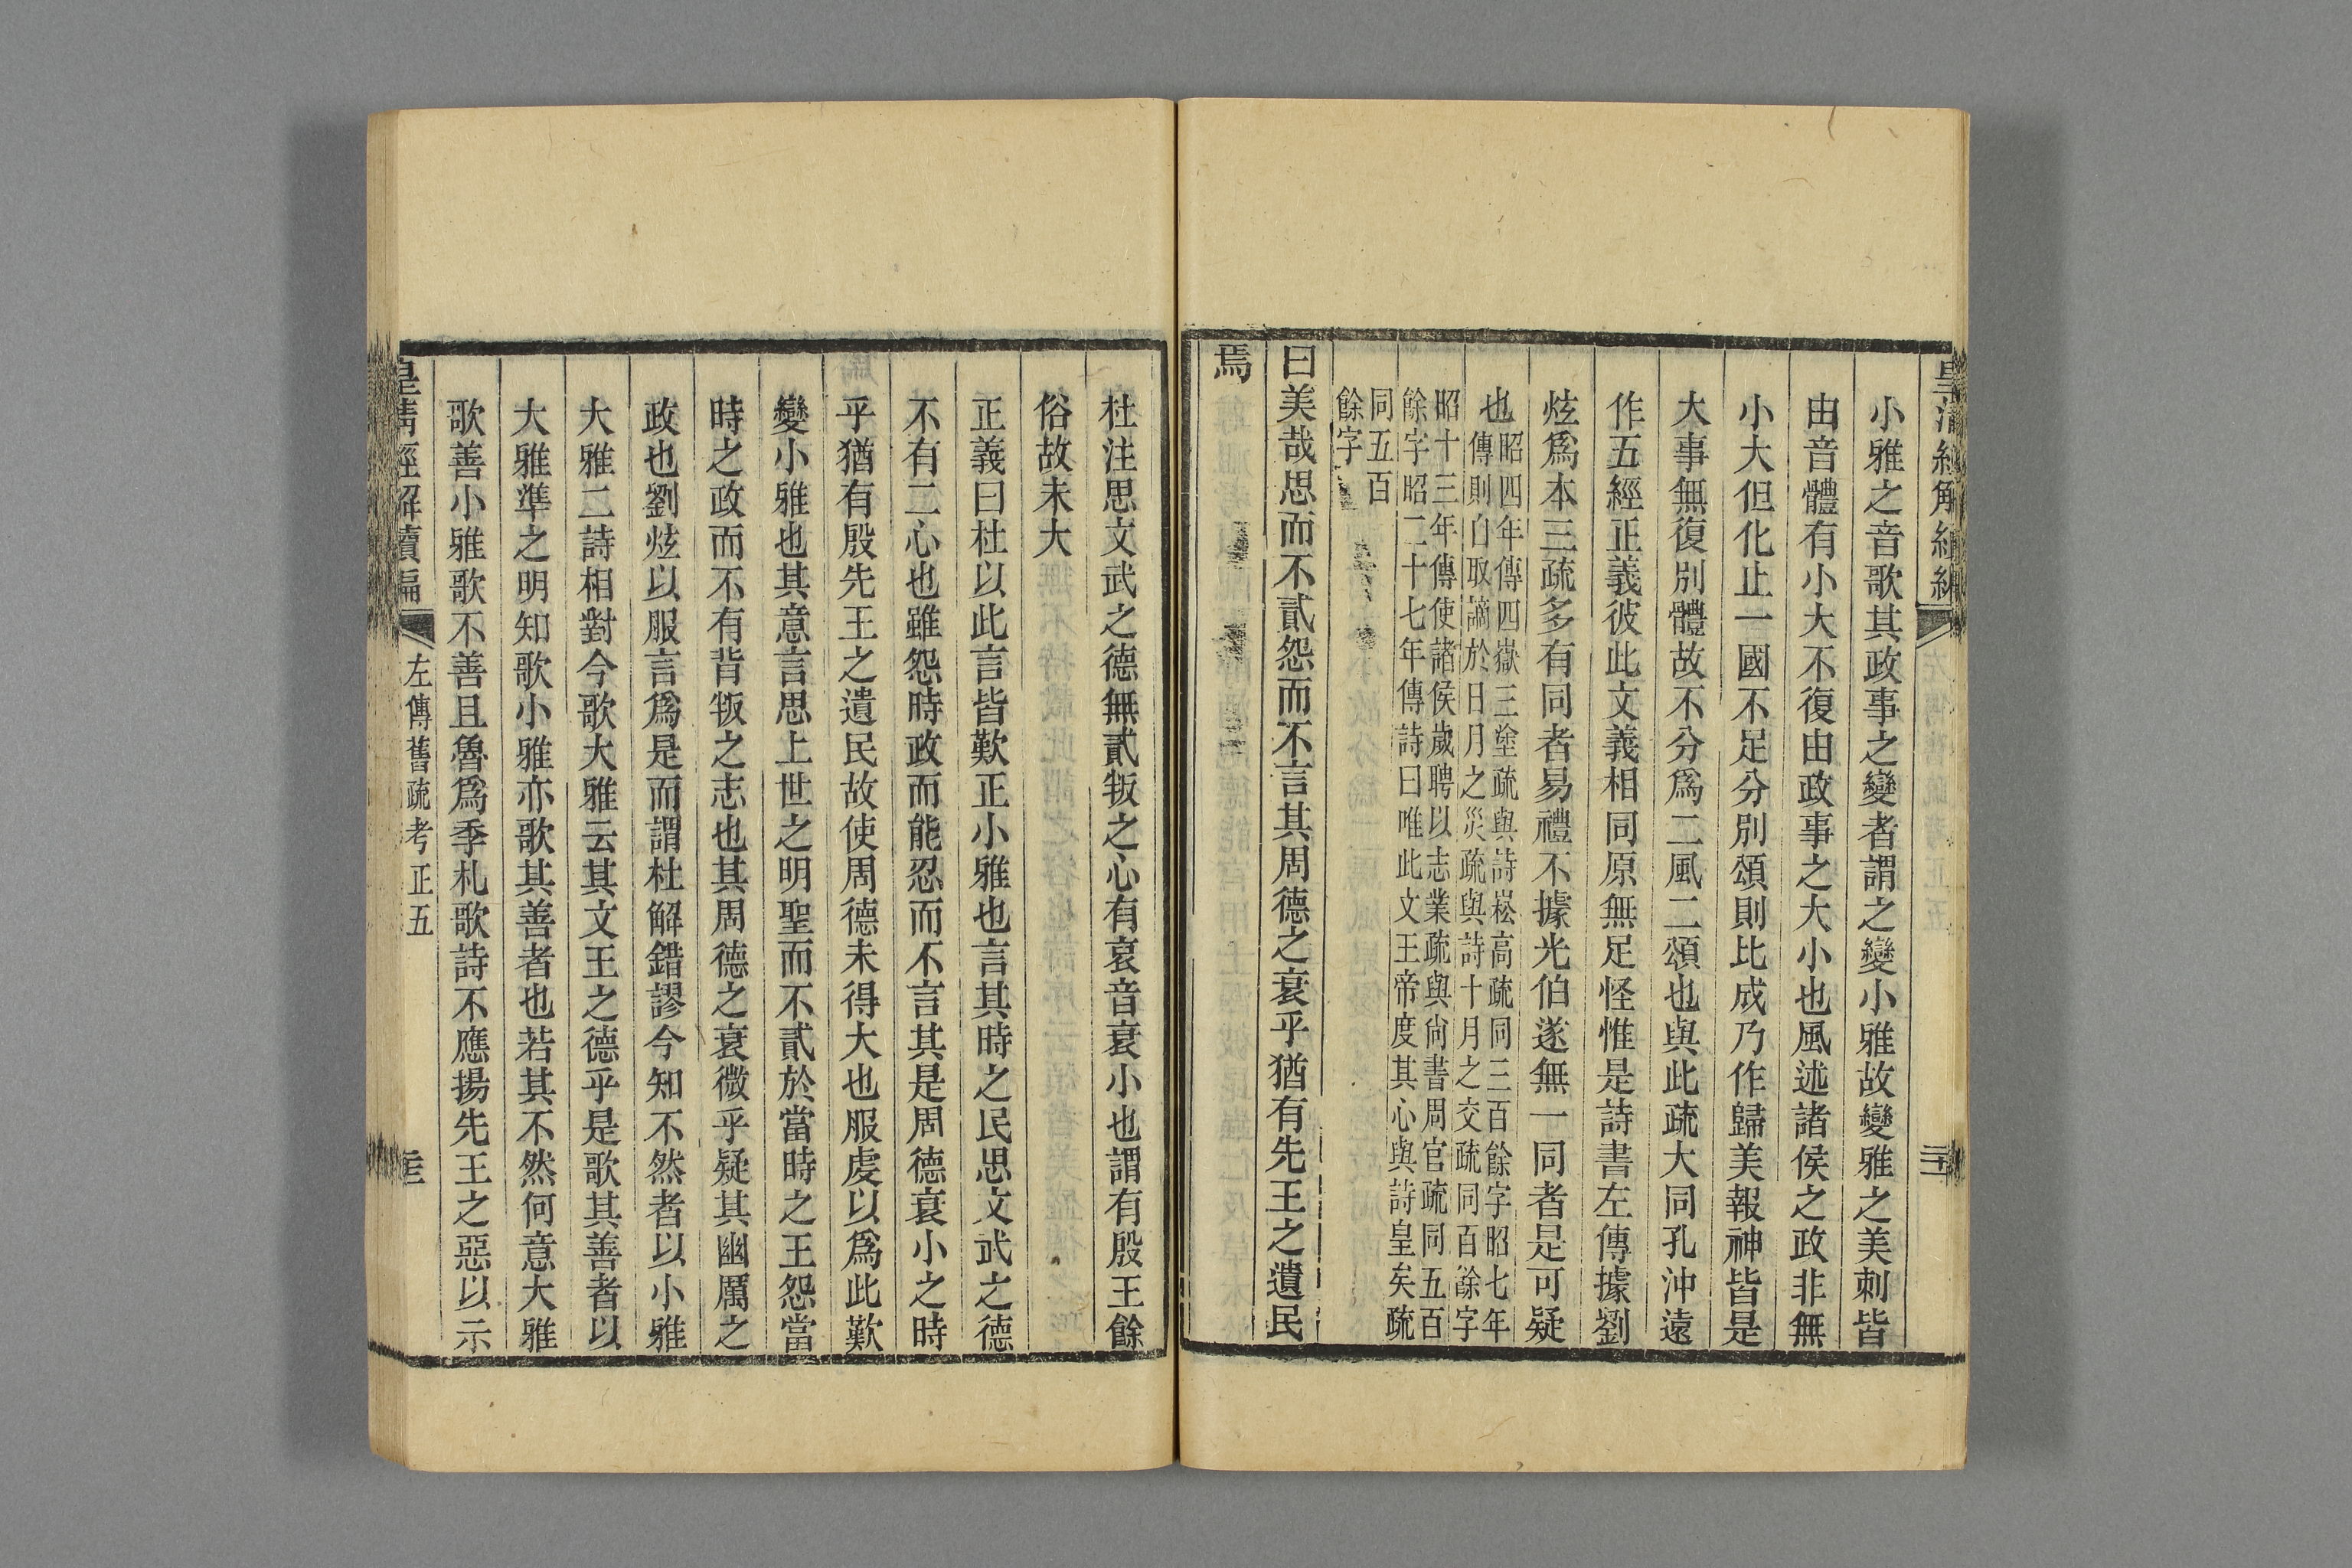 小雅之音歌其政事之變者謂之變小雅故變雅之美刺皆
由音體有小大不復由政事之大小也風述諸侯之政非無
小大但化止一國不足分別頌則比成乃作歸美報神皆是
大事無復別體故不分爲二風二頌也與此疏大同孔沖遠
作五經正義彼此文義相同原無足怪惟是詩書左傳據劉
炫爲本三疏多有同者易禮不據光伯遂無一同者是可疑
也昭四年傳四嶽三塗疏與詩崧高疏同三百餘字昭七年
傳則自取謫於日月之災疏與詩十月之交疏同百餘字
昭十三年傳使諸侯歲聘以志業疏與尙書周官疏同五百
餘字昭二十七年傳詩曰唯此文王帝度其心與詩皇矣疏
同五百
餘字
曰美哉思而不貳怨而不言其周德之衰乎猶有先王之遺民
焉
杜注思文武之德無貳叛之心有哀音衰小也謂有殷王餘
俗故未大
正義曰杜以此言皆歎正小雅也言其時之民思文武之德
不有二心也雖怨時政而能忍而不言其是周德衰小之時
乎猶有殷先王之遺民故使周德未得大也服虔以爲此歎
變小雅也其意言思上世之明聖而不貳於當時之王怨當
時之政而不有背叛之志也其周德之衰微乎疑其幽厲之
政也劉炫以服言爲是而謂杜解錯謬今知不然者以小雅
大雅二詩相對今歌大雅云其文王之德乎是歌其善者以
大雅準之明知歌小雅亦歌其善者也若其不然何意大雅
歌善小雅歌不善且魯爲季札歌詩不應揚先王之惡以示
皇淸經解續編
左傳舊疏考正五